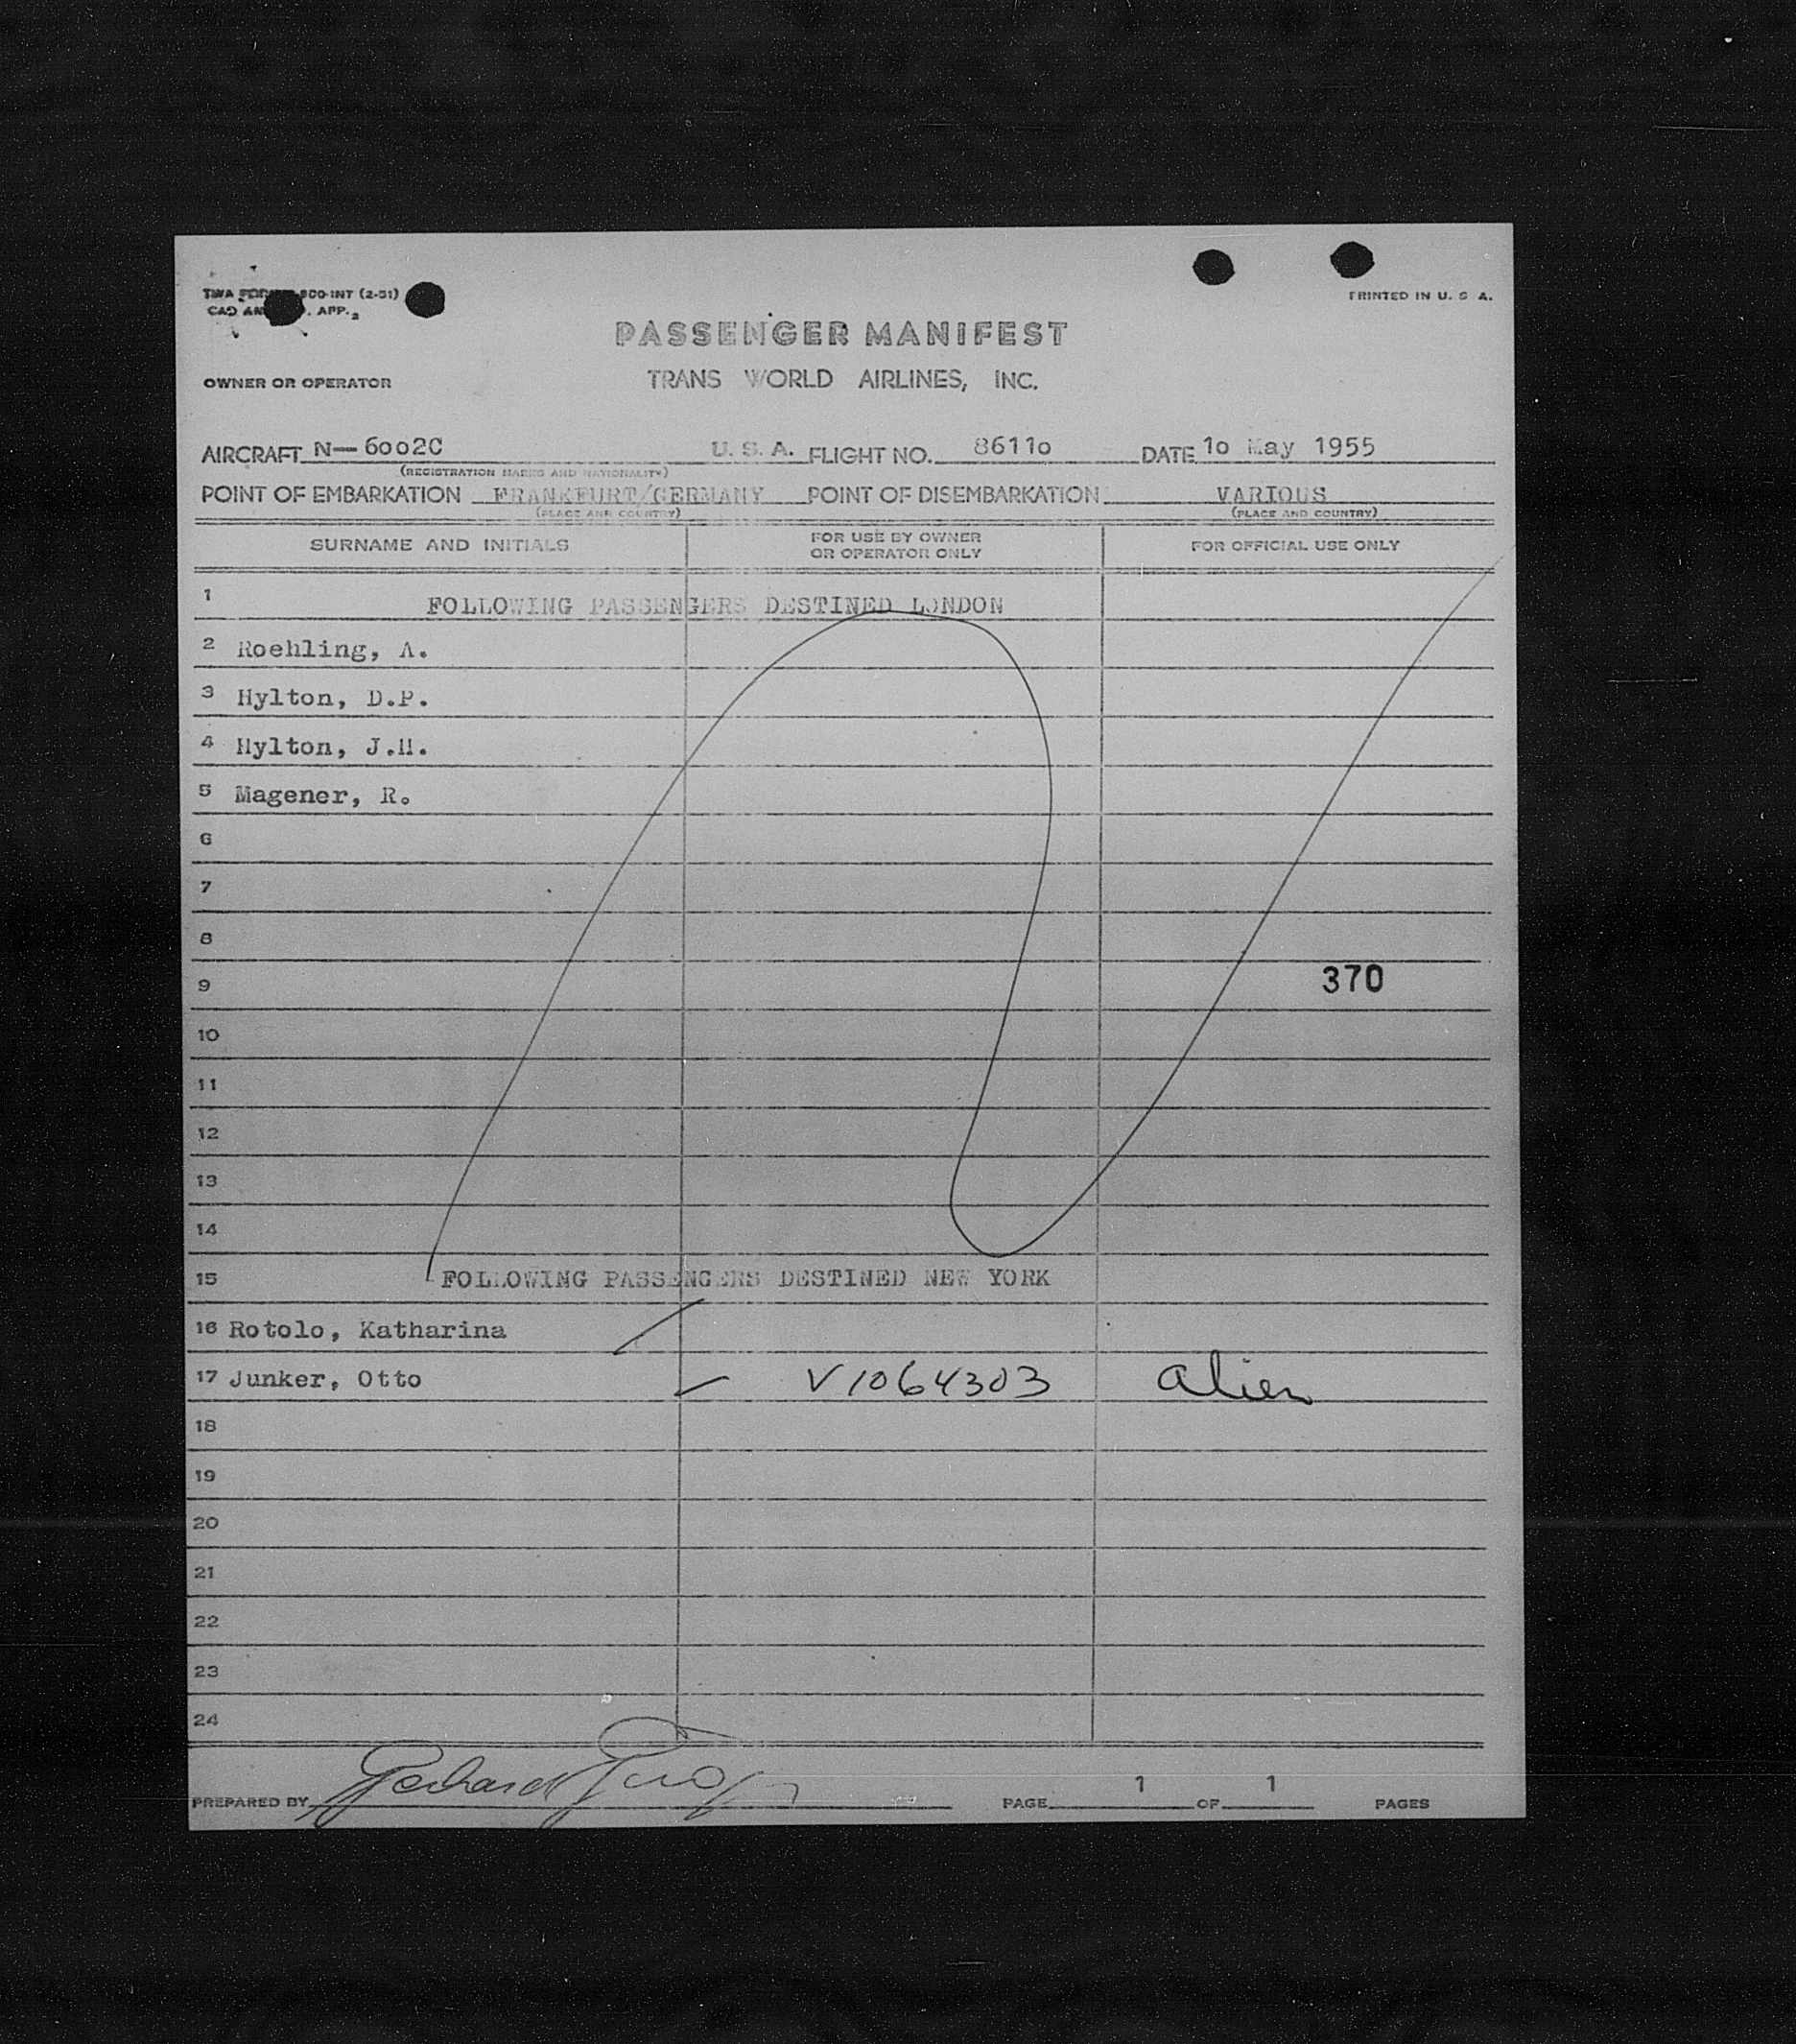 TWA FORM 800-INT (2-51)
CAO AN APP. 2
PRINTED IN U. S A.
PASSENGER MANIFEST
OWNER OR OPERATOR TRANS WORLD AIRLINES, INC.
AIRCRAFT N—6oo2C U. S. A. FLIGHT NO. 8611o DATE 1o May 1955
(REGISTRATION MARKS AND NATIONALITY)
POINT OF EMBARKATION FRANKFURT/GERMANY POINT OF DISEMBARKATION VARIOUS
(PLACE AND COUNTRY) (PLACE AND COUNTRY)
SURNAME AND INITIALS FOR USE BY OWNER OR OPERATOR ONLY FOR OFFICIAL USE ONLY
1 FOLLOWING PASSENGERS DESTINED LONDON
2 Roehling, A.
3 Hylton, D.P.
4 Hylton, J.H.
5 Magener, R.
6
7
8
9 370
10
11
12
13
14
15 FOLLOWING PASSENGERS DESTINED NEW YORK
16 Rotolo, Katharina
17 Junker, Otto V1064303 alien
18
19
20
21
22
23
24
PREPARED BY Gerhard PAGE 1 OF 1 PAGES